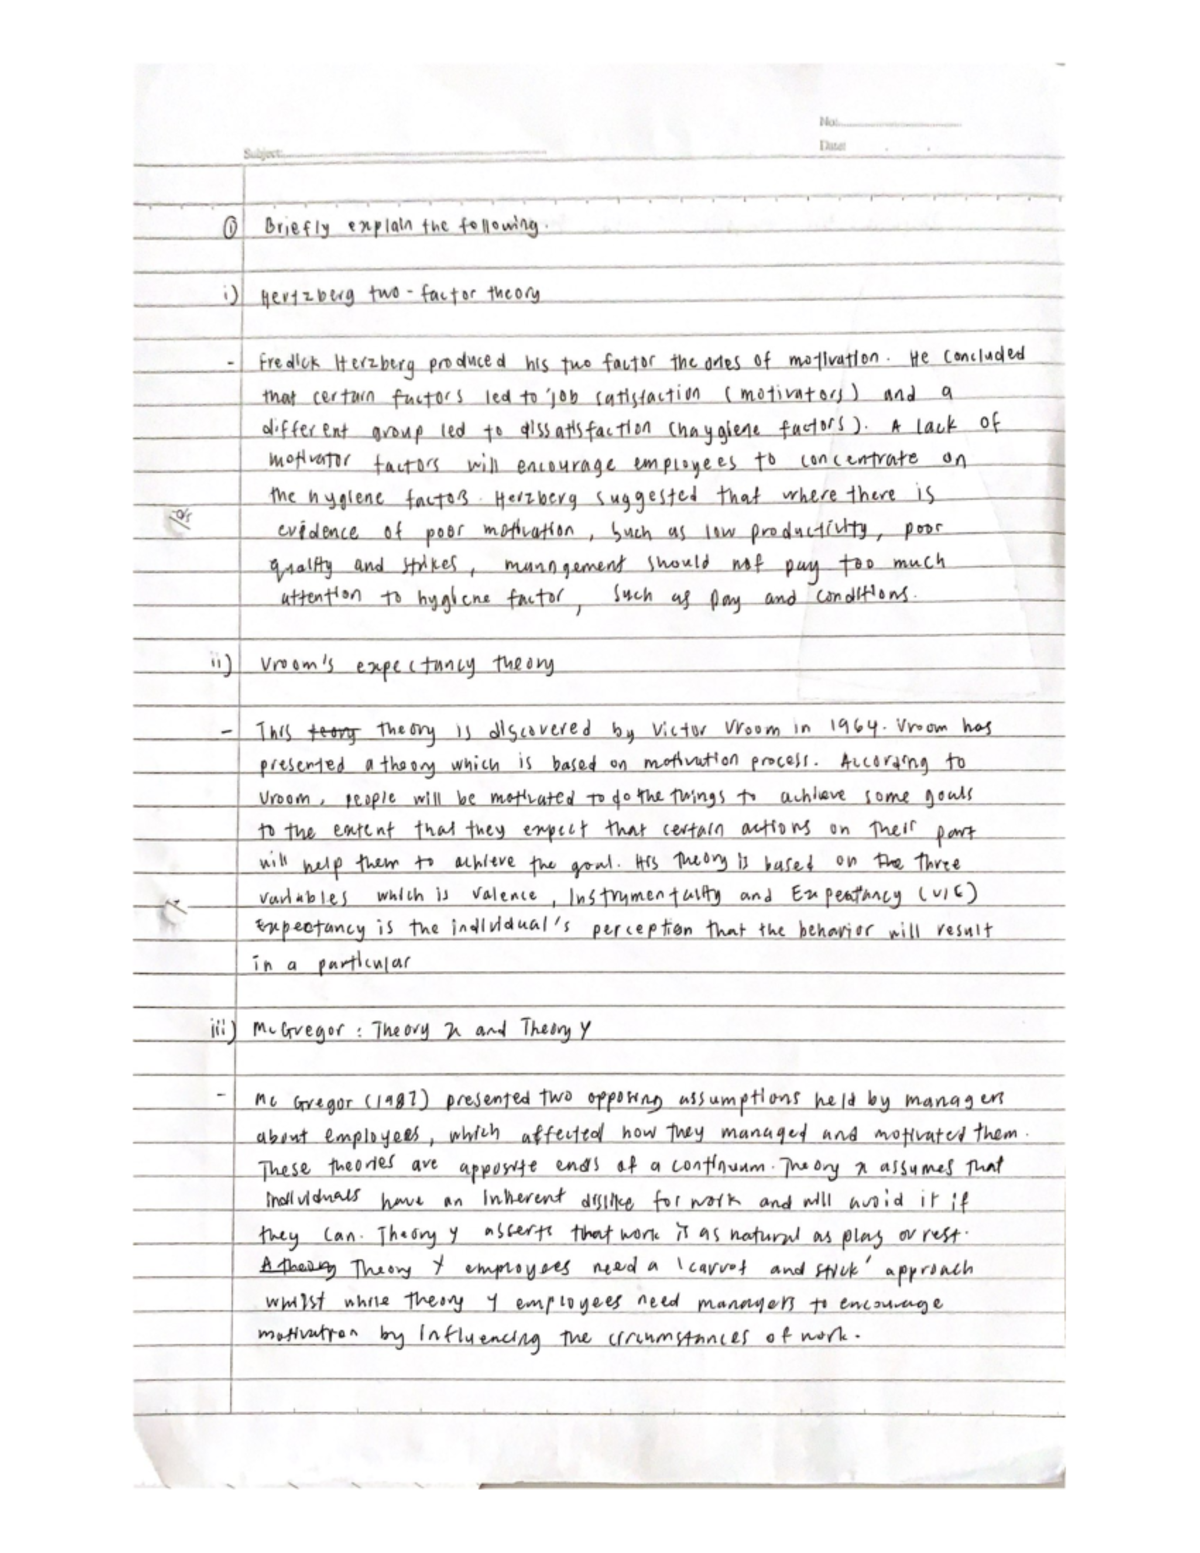 No:
Subject: Date:
① Briefly explain the following.
i) Hertzberg two-factor theory
- Fredick Herzberg produced his two factor the ories of motivation. He concluded
that certain factors led to job satisfaction (motivators) and a
different group led to dissatisfaction (haygiene factors). A lack of
motivator factors will encourage employees to concentrate on
the hygiene factors. Herzberg suggested that where there is
evidence of poor motivation, such as low productivity, poor
quality and strikes, management should not pay too much
attention to hygiene factor, such as pay and conditions.
ii) Vroom's expectancy theory
- This teory theory is discovered by Victor Vroom in 1964. Vroom has
presented a theory which is based on motivation process. According to
Vroom, people will be motivated to do the things to achieve some goals
to the extent that they expect that certain actions on their part
will help them to achieve the goal. His theory is based on the three
variables which is valence, Instrumentality and Expectancy (VIE)
Expectancy is the individual's perception that the behavior will result
in a particular
iii) McGregor : Theory X and Theory Y
- Mc Gregor (1987) presented two opposing assumptions held by managers
about employees, which affected how they managed and motivated them.
These theories are apposite ends of a continuum. Theory X assumes that
individuals have an inherent dislike for work and will avoid it if
they can. Theory Y asserts that work is as natural as play or rest.
A theory Theory X employees need a 'carrot and stick' approach
whilst while theory Y employees need managers to encourage
motivation by influencing the circumstances of work.